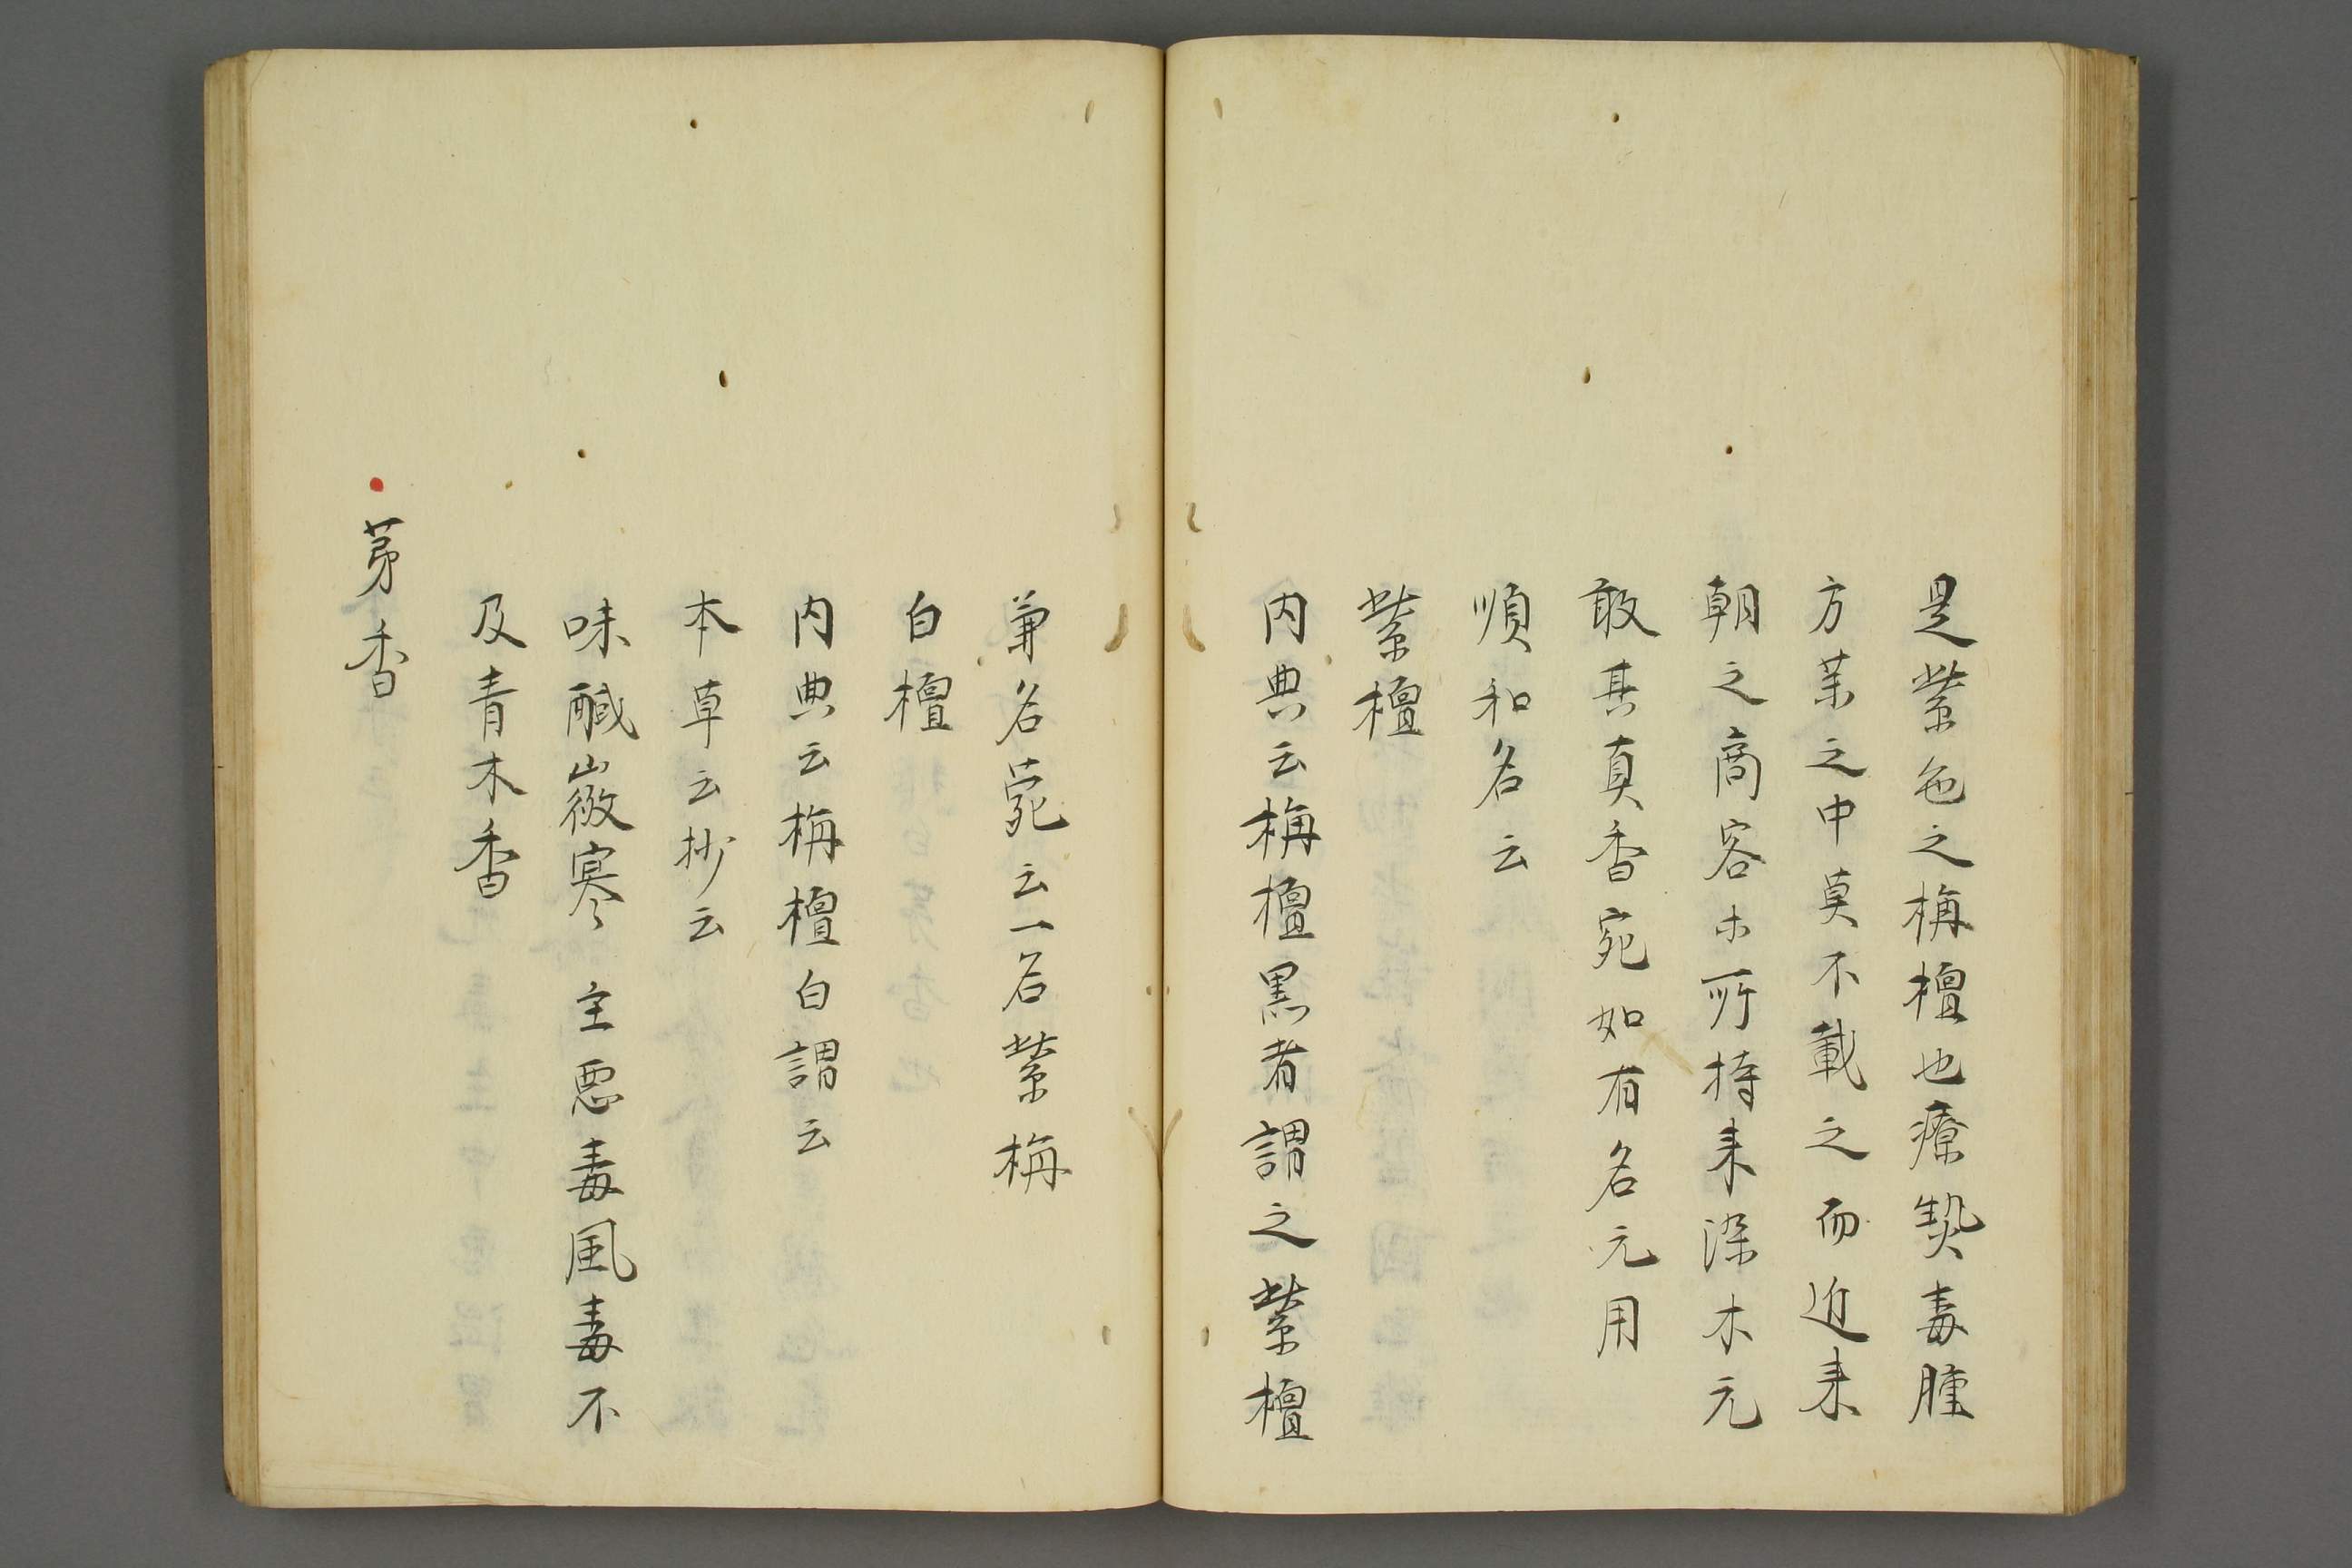 是紫色之栴檀也療熱毒腫
方茉之中莫不載之而近来
朝之商客ホ所持来深木元
敢其真香宛如有名元用
順和名云
紫檀
内典云栴檀黒者謂之紫檀
兼名菀云一名紫栴
白檀
内典云栴檀白謂云
本草云抄云
味醎微寒 主悪毒風毒不
及青木香
茅香